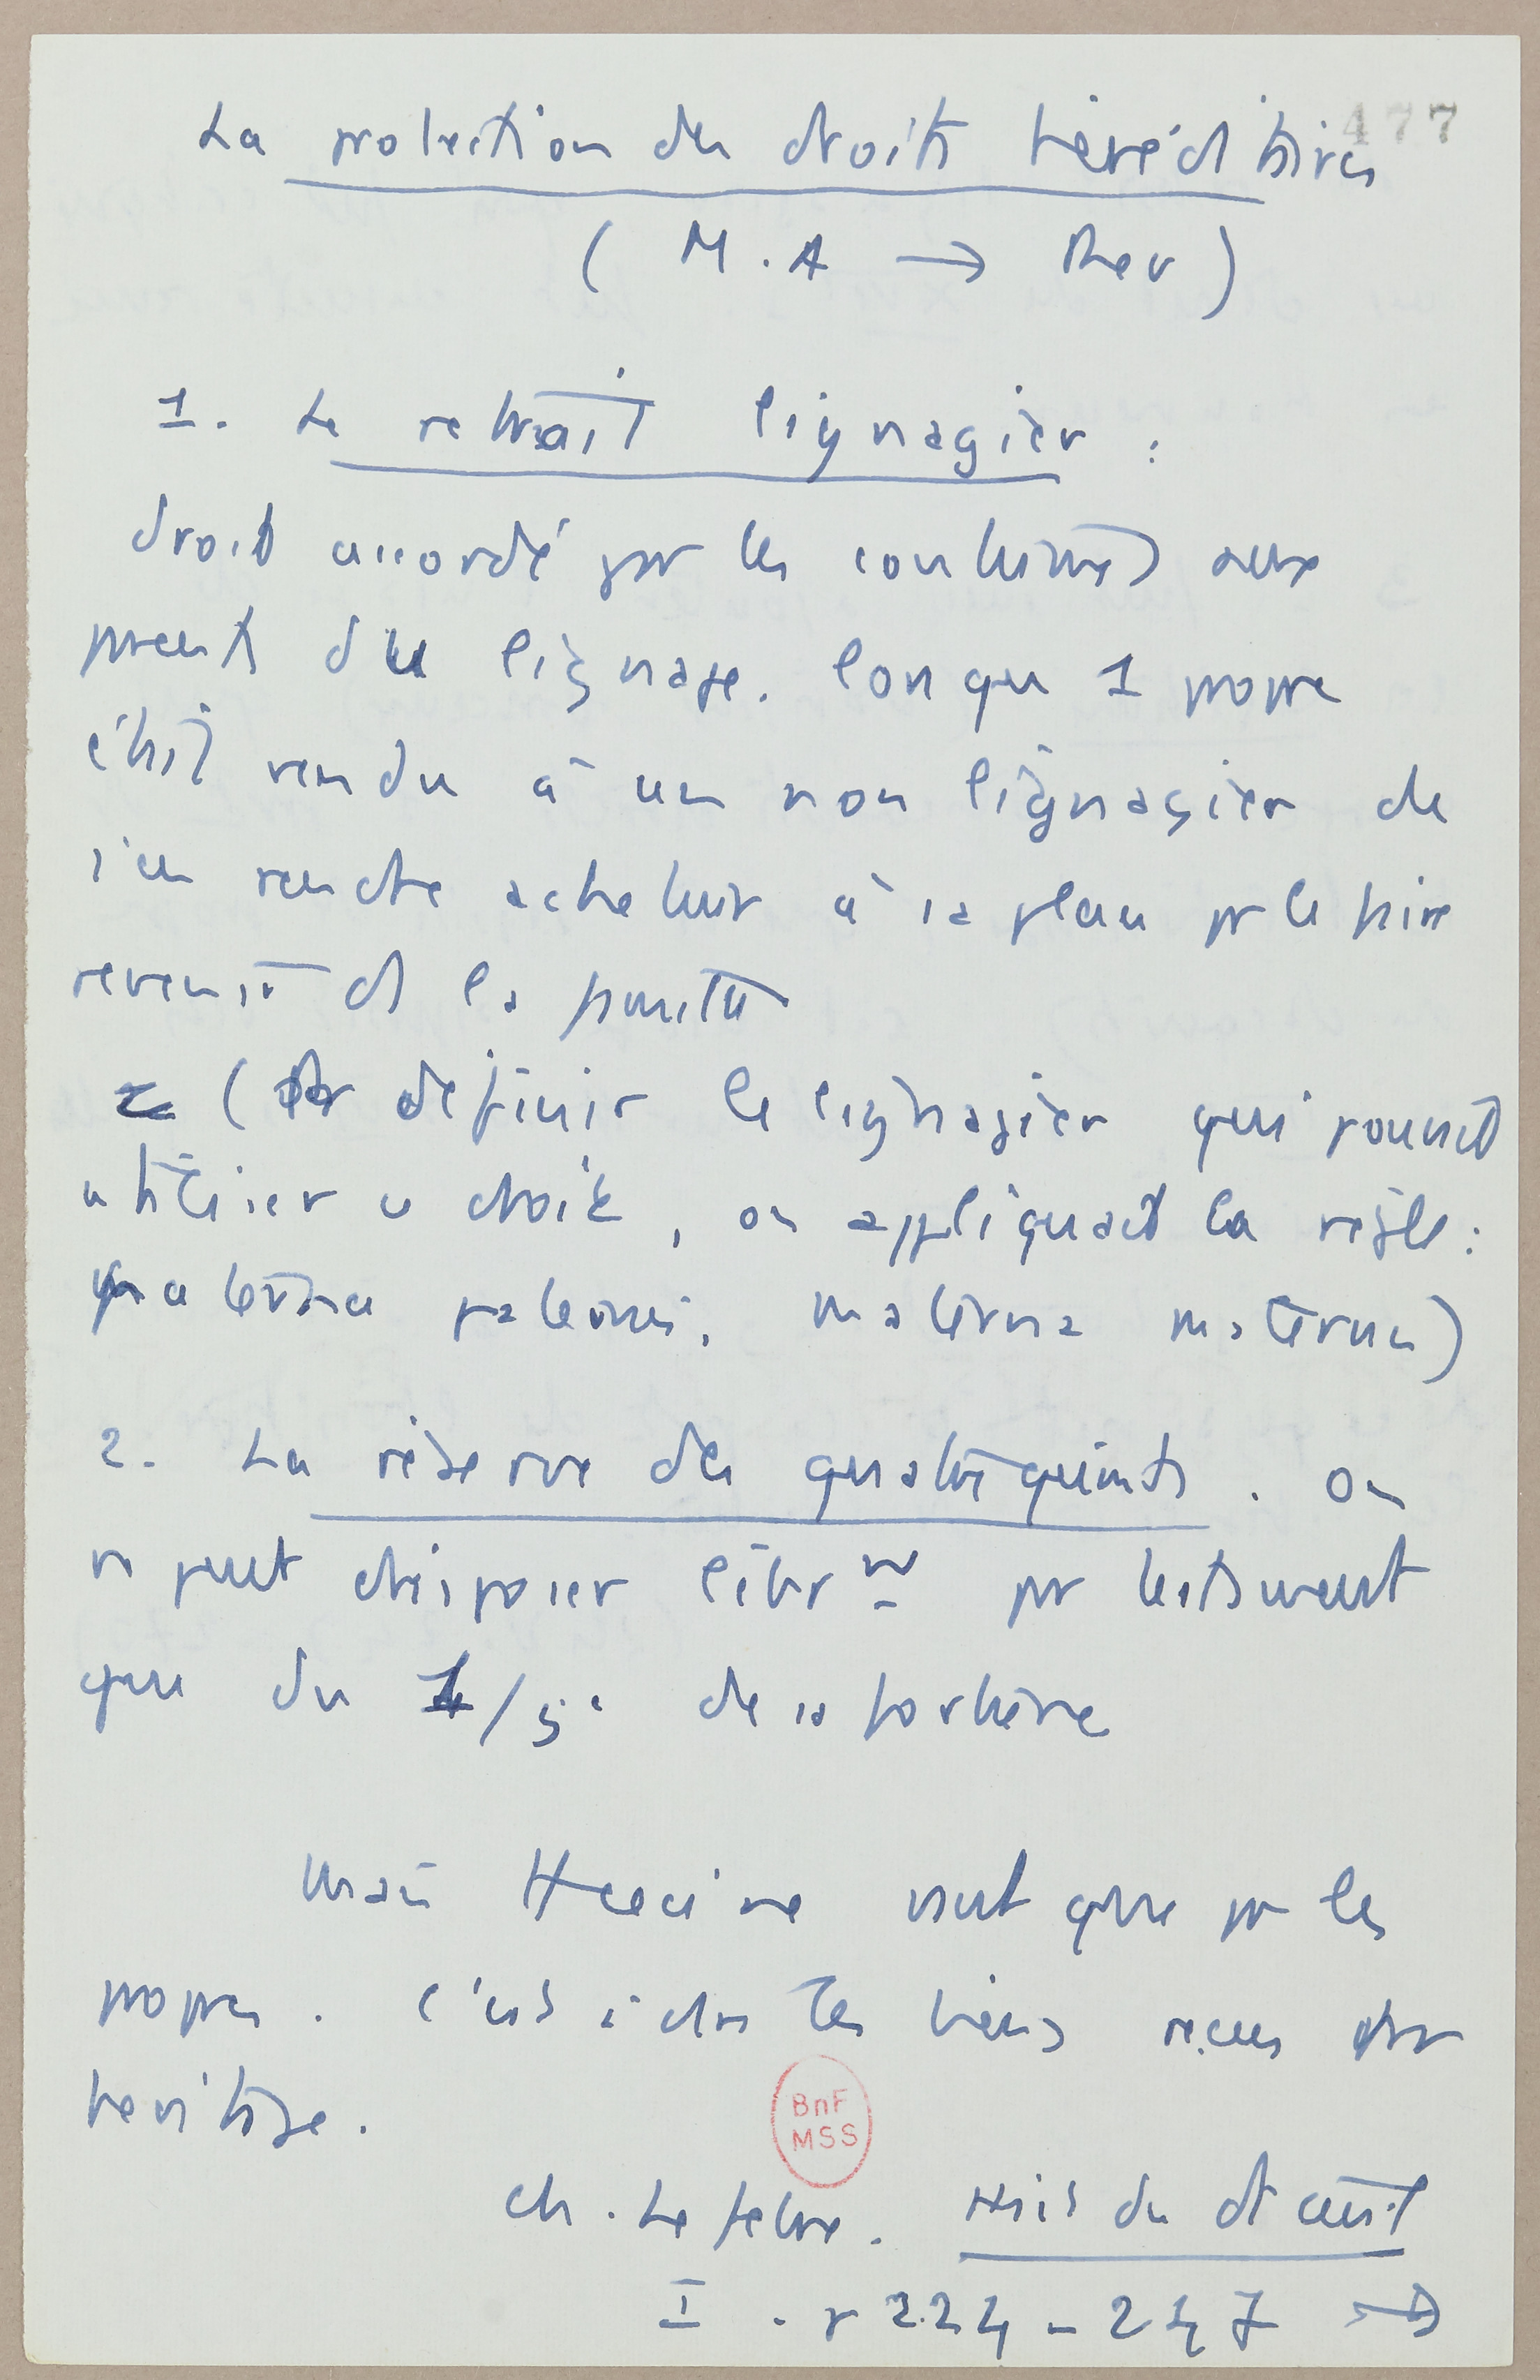 477
La protection des droits héréditaires
(M.A → Rev)
1. Le retrait lignager :
droit accordé par les coutumes aux
parents du lignage. lorsque 1 propre
était vendu à un non lignager de
s'en rendre acheteur à sa place pr le faire
revenir ds la famille
(Pr définir le lignager qui pouvait
utiliser ce droit, on appliquait la règle :
paterna paternis, materna maternis)
2. La réserve des quatre quints. On
ne peut disposer librmt par testament
que du 1/5e de sa fortune
Mais ceci ne vaut que pr les
propres. C'est à dire les biens reçus par
héritage.
Ch. Lefebvre. Hist du dt civil
I. p 224-247 →
BnF
MSS